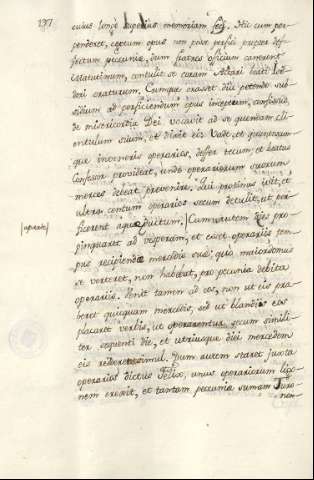 197
cuius longe superius memoriam feci. Hic cum per-
penderet, ceptum opus non posse perfici propter def-
fectum pecuniae, dum fratres oficium canerent
matutinum, contulit se coram Altari beati Isi-
dori oraturum. Cumque orasset diu petendo sub-
sidium ad perficiendum opus inceptum, confisus
de misericordia Dei vocavit ad se quendam cli-
entulum suum, et dixit ei: Vade, et quoscumque
inveneris operarios, deffer tecum, et beatus
Confessor providebit, unde operariorum suorum
merces debeat provenire. Qui protinus ivit, et
ultra centum operarios secum detulit, et per-
ficerent aquae ductum. Cum autem dies pro-
|aparte|
pinquaret ad vesperam, et esset operariis tem-
pus recipiendae mercedis suae; quia maiordomus
se verteret, non habebat, pro pecunia debita
operariis. Venit tamen ad eos, non ut eis prae-
beret quicquam mercedis, sed ut blandis eos
placaret verbis, ut operarentur secum simili-
ter sequenti die, et utriusque diei mercedem
eis redderet simul. Dum autem staret juxta
operarios dictus Felix, unus operariorum ligo-
nem erexit, et tantam pecuniae sumam Turo-
nen-